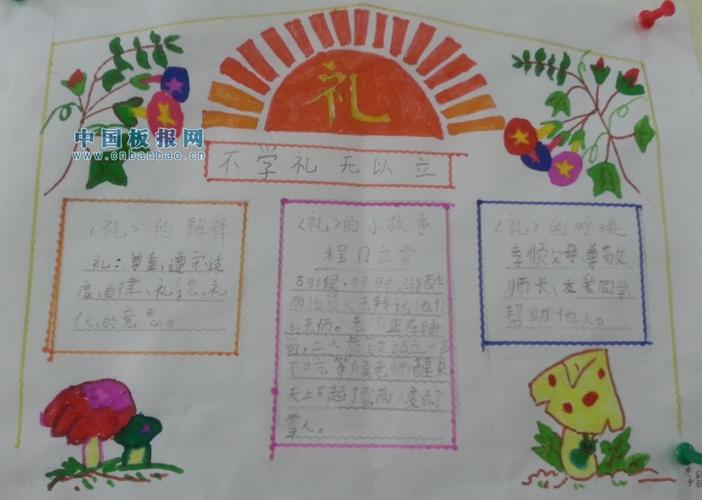 礼
中国板报网
www.cnbanbao.cn
不学礼 无以立
《礼》的解释
礼：尊重、遵守适
度、自律、礼貌、礼
仪、的意思。
《礼》的小故事
程门立雪
古时候，杨时、游酢
两位员人去拜访他们
的老师。老师正在睡
觉，二人恭敬站立一声
不吭等候老师醒来
天上下起了雪两人变成了
雪人。
《礼》的呼唤
孝顺父母、尊敬
师长、友爱同学
帮助他人。